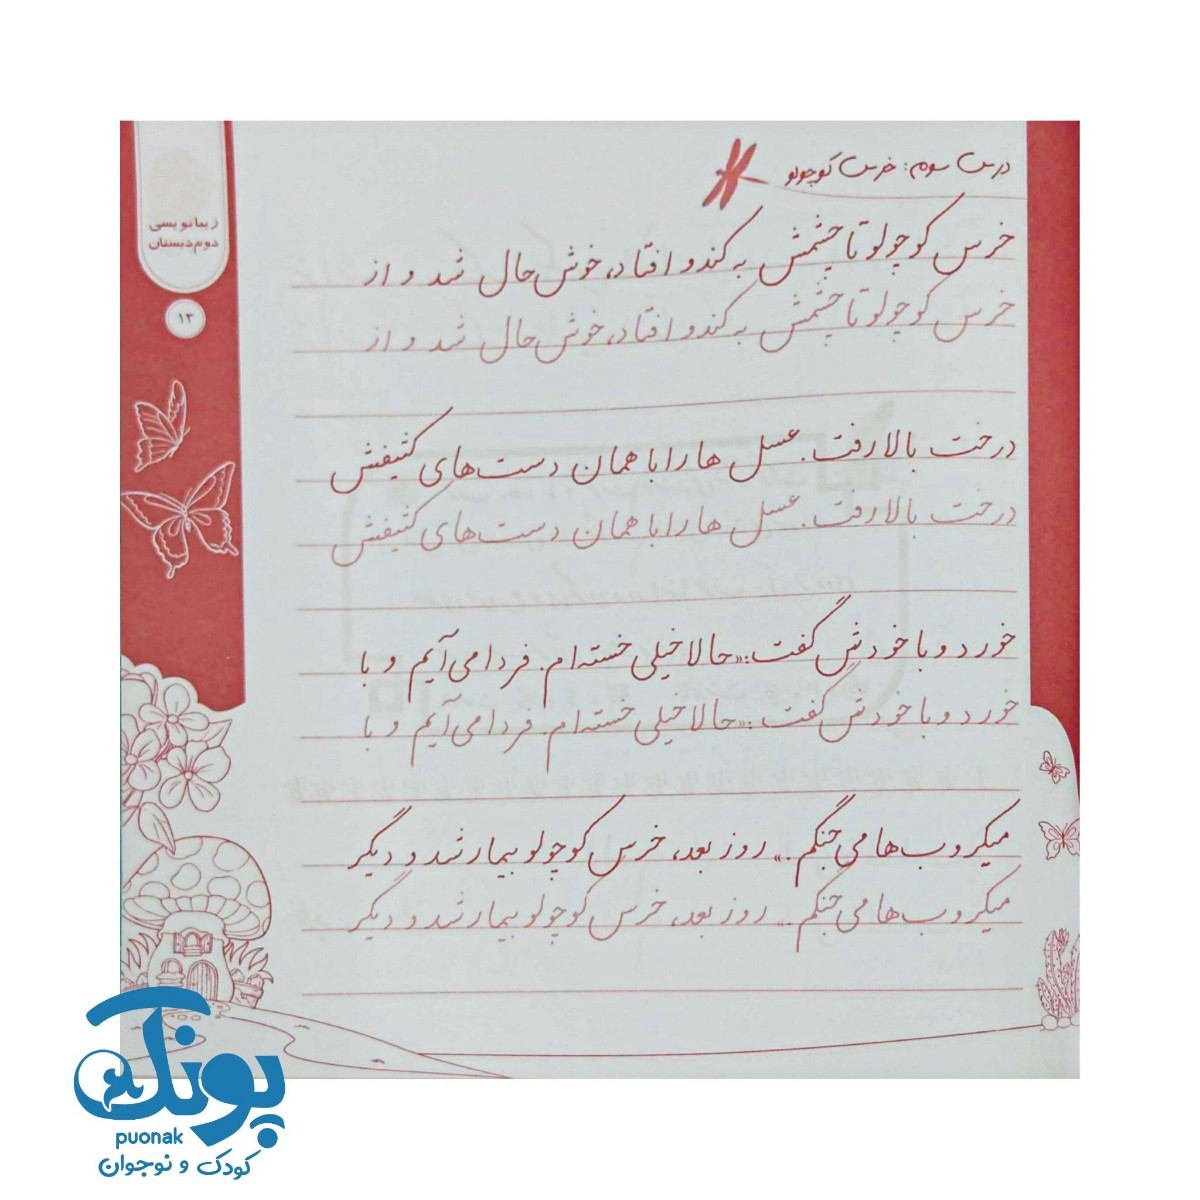 درس سوم: خرس کوچولو
خرس کوچولو تا چشمش به کندو افتاد، خوش‌حال شد و از
خرس کوچولو تا چشمش به کندو افتاد، خوش‌حال شد و از
درخت بالا رفت. عسل ها را با همان دست‌های کثیفش
درخت بالا رفت. عسل ها را با همان دست‌های کثیفش
خورد و با خودش گفت: «حالا خیلی خسته‌ام. فردا می‌آیم و با
خورد و با خودش گفت: «حالا خیلی خسته‌ام. فردا می‌آیم و با
میکروب‌ها می‌جنگم.» روز بعد، خرس کوچولو بیمار شد و دیگر
میکروب‌ها می‌جنگم.» روز بعد، خرس کوچولو بیمار شد و دیگر
زیبانویسی
دوم دبستان
۱۳
پونک
puonak
کودک و نوجوان